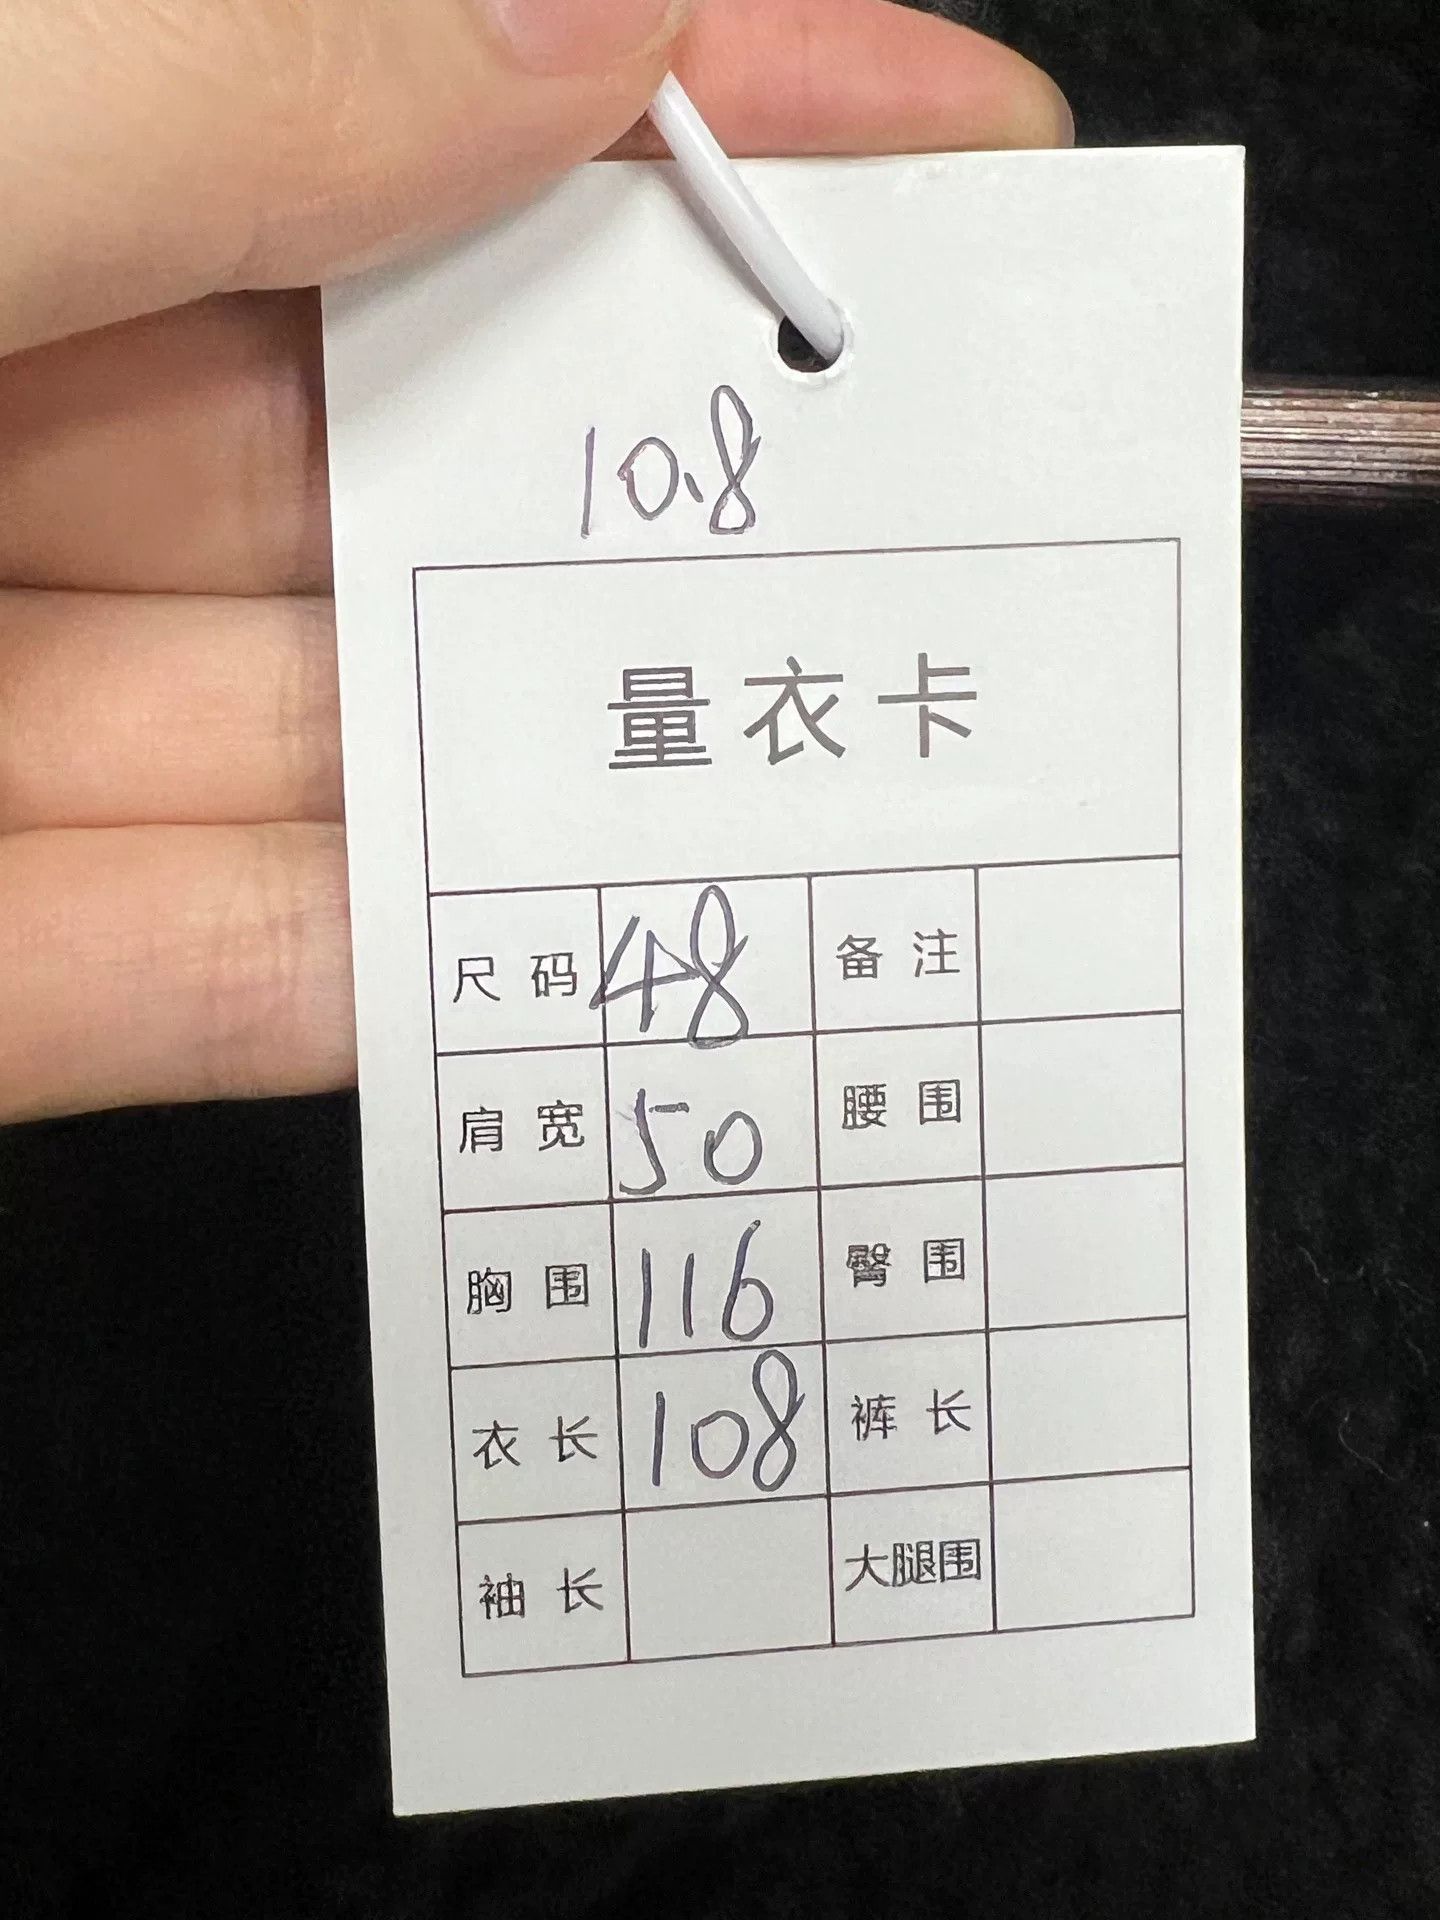 10.8
量衣卡
尺码 48 备注
肩宽 50 腰围
胸围 116 臀围
衣长 108 裤长
袖长 大腿围